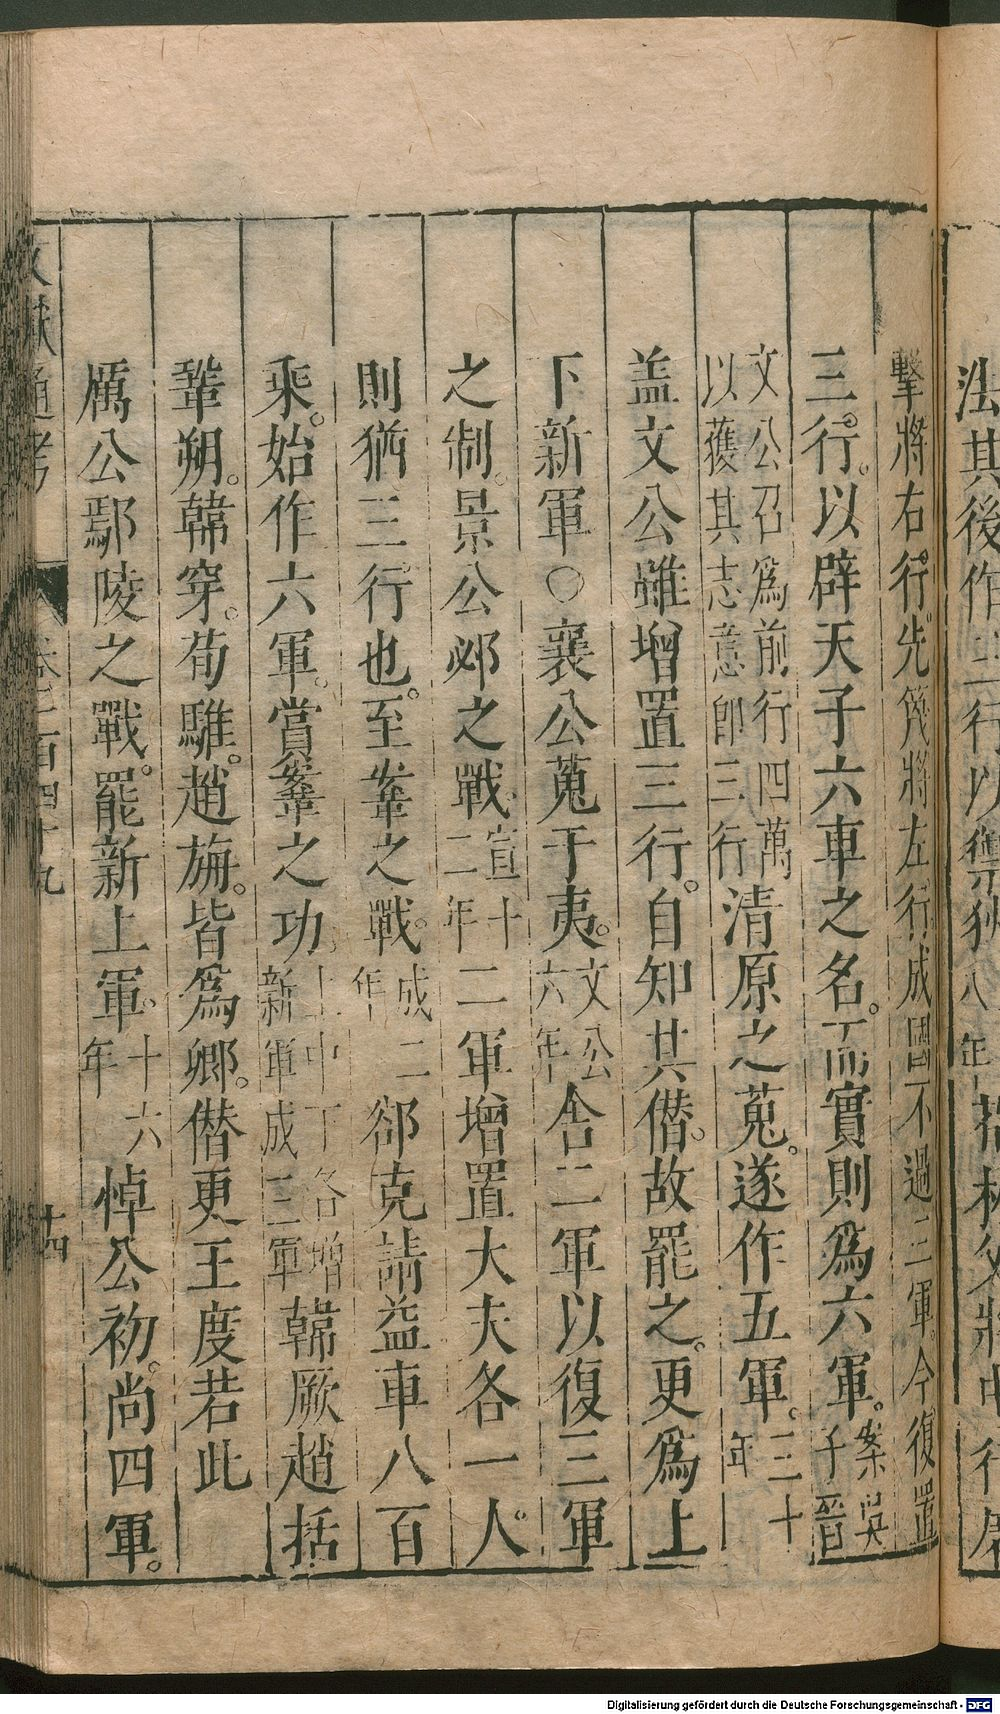 法其後作三行以禦狄八年荀林父將中行屠
擊將右行先篾將左行成國不過三軍今復置
三行以辟天子六軍之名而實則爲六軍案吳子晉
文公召爲前行四萬以獲其志意卽三行清原之蒐遂作五軍三十年
盖文公雖增置三行自知其僣故罷之更爲上
下新軍○襄公蒐于夷文公六年舍二軍以復三軍
之制景公邲之戰宣十二年二軍增置大夫各一人
則猶三行也至鞌之戰成二年郤克請益車八百
乘始作六軍賞鞌之功上中下各增新軍成三軍韓厥趙括
鞏朔韓穿荀騅趙旃皆爲卿僣更王度若此
厲公鄢陵之戰罷新上軍十六年悼公初尚四軍
文獻通考 卷一百四十九 十四
Digitalisierung gefördert durch die Deutsche Forschungsgemeinschaft - DFG